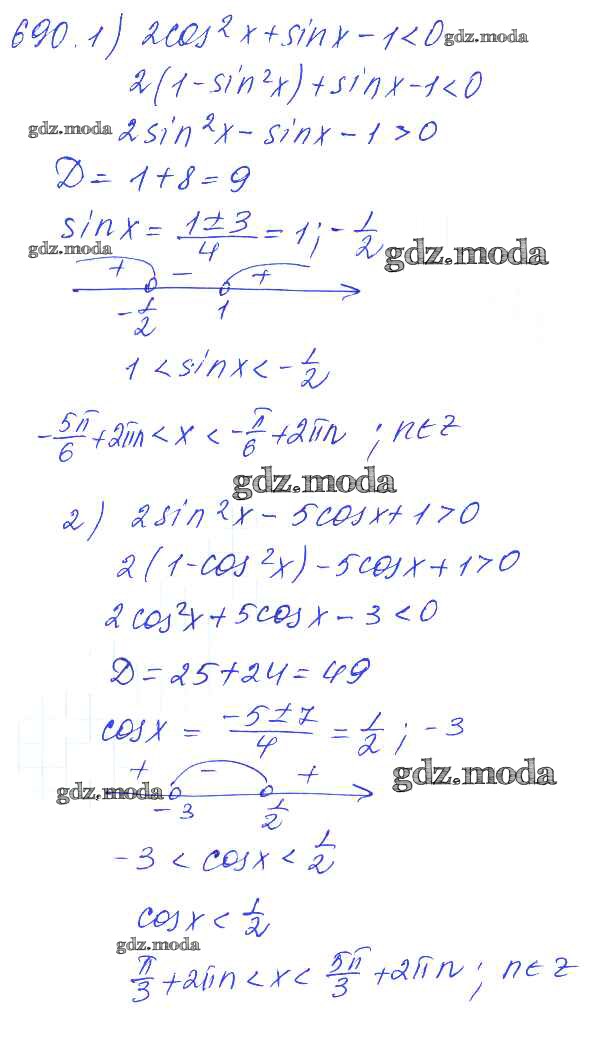 690. 1) 2cos²x + sinx - 1 < 0 gdz.moda
2(1 - sin²x) + sinx - 1 < 0
gdz.moda 2sin²x - sinx - 1 > 0
D = 1 + 8 = 9
sinx = (1 ± 3)/4 = 1; -1/2
gdz.moda gdz.moda
+ - +
-1/2 1
1 < sinx < -1/2
-5π/6 + 2πn < x < -π/6 + 2πn ; n∈Z
gdz.moda
2) 2sin²x - 5cosx + 1 > 0
2(1 - cos²x) - 5cosx + 1 > 0
2cos²x + 5cosx - 3 < 0
D = 25 + 24 = 49
cosx = (-5 ± 7)/4 = 1/2 ; -3
+ - + gdz.moda
gdz.moda
-3 1/2
-3 < cosx < 1/2
cosx < 1/2
gdz.moda
π/3 + 2πn < x < 5π/3 + 2πn ; n∈Z